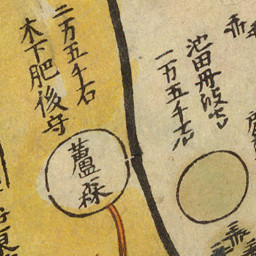 池田丹波守
一万五千石
二万五千石
木下肥後守
蘆森